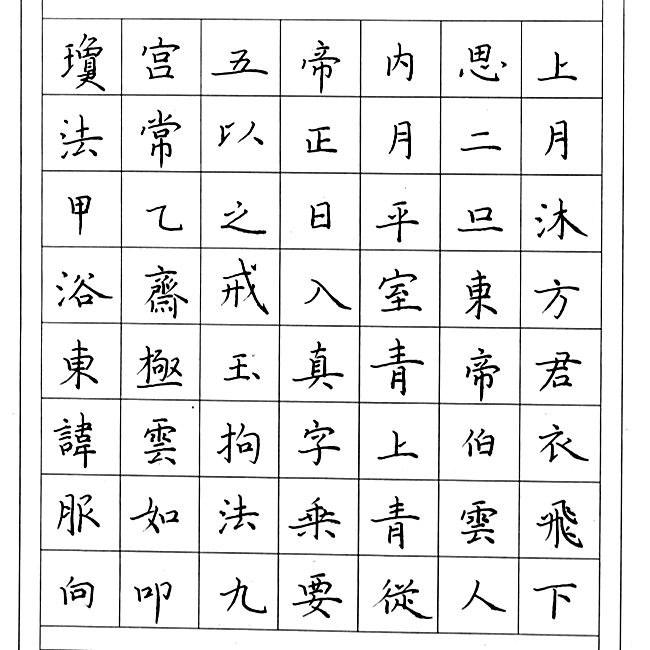 瓊宫五帝内思上
法常以正月二月
甲乙之日平旦沐
浴齋戒入室東方
東極玉真青帝君
諱雲拘字上伯衣
服如法乘青雲飛
向叩九要從人下